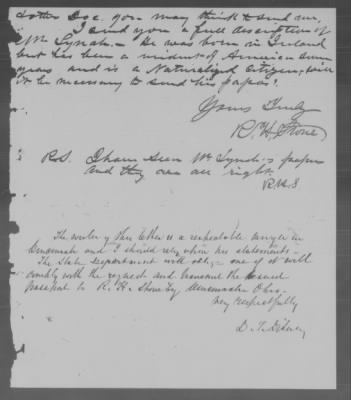 & other Doc. you may think to send me.
I send you a full description of
Mr Lynch. - He was born in Ireland
but has been a resident of America seven
years and is a Naturalized Citizen, will
it be necessary to send his papers?
Yours Truly
R. H. Stone
P.S. I have seen Mr Lynch's papers
and they are all right.
R.H.S.
The writer of this letter is a respectable
Cincinnati and I should rely upon his statements -
The State Department will oblige me if it will
comply with the request and transmit the
passport to R. H. Stone Esq Cincinnati Ohio -
Very respectfully
D. T. Disney